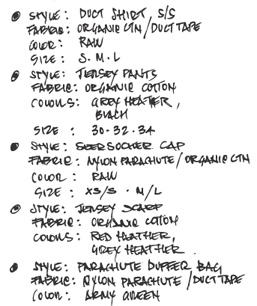 STYLE: DUCT SHIRT S/S
FABRIC: ORGANIC CTN/DUCT TAPE
COLOR: RAW
SIZE: S.M.L
STYLE: JERSEY PANTS
FABRIC: ORGANIC COTTON
COLOURS: GREY HEATHER,
BLACK
SIZE: 30.32.34
STYLE: SEERSOCKER CAP
FABRIC: NYLON PARACHUTE/ORGANIC CTN
COLOR: RAW
SIZE: XS/S . M/L
STYLE: JERSEY SCARF
FABRIC: ORGANIC COTTON
COLOURS: RED HEATHER,
GREY HEATHER.
STYLE: PARACHUTE DUFFER BAG
FABRIC: NYLON PARACHUTE/DUCT TAPE
COLOR: ARMY GREEN